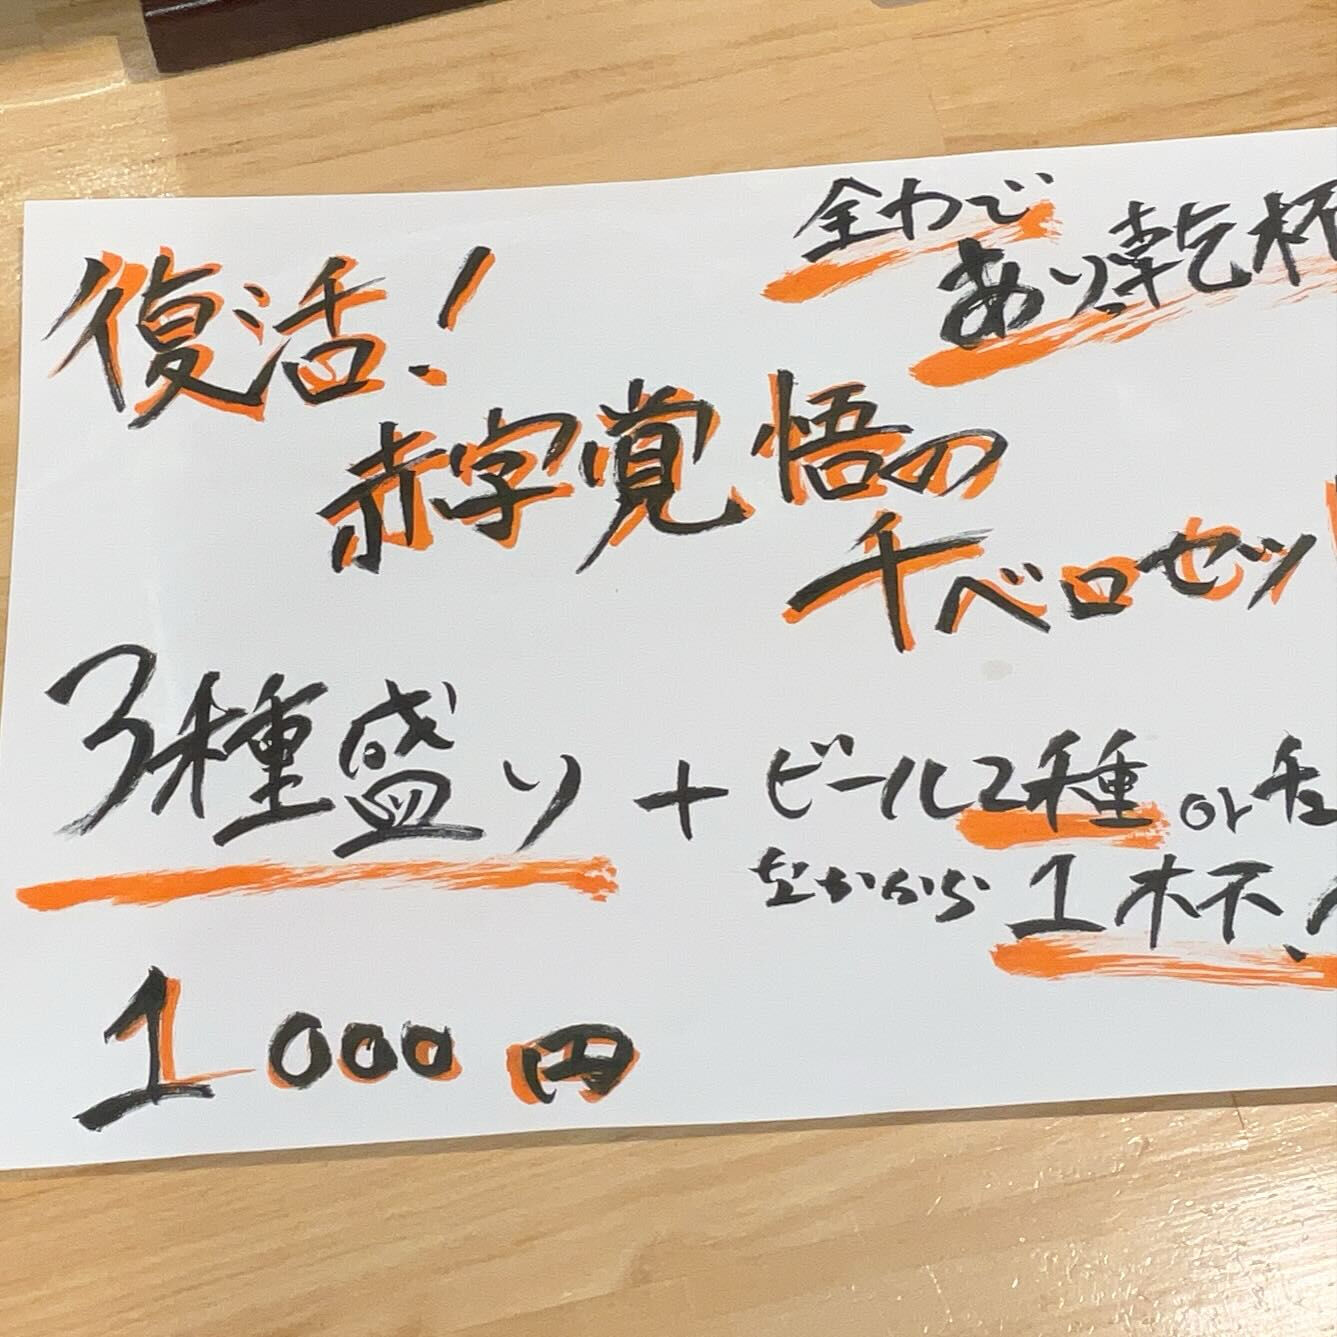 復活!
全力で
あり乾杯
赤字覚悟の
千ベロセッ
3種盛り + ビール2種 or チュ
なかから 1杯
1000円